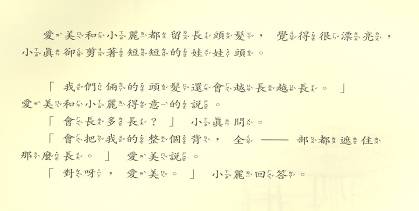 愛美和小麗都留長頭髮，覺得很漂亮，
小真卻剪著短短短的娃娃頭。
「我們倆的頭髮還會越長越長。」
愛美和小麗得意的說。
「會長多長？」小真問。
「會把我的整個背，全——部都遮住
那麼長。」愛美說。
「對呀，愛美。」小麗回答。